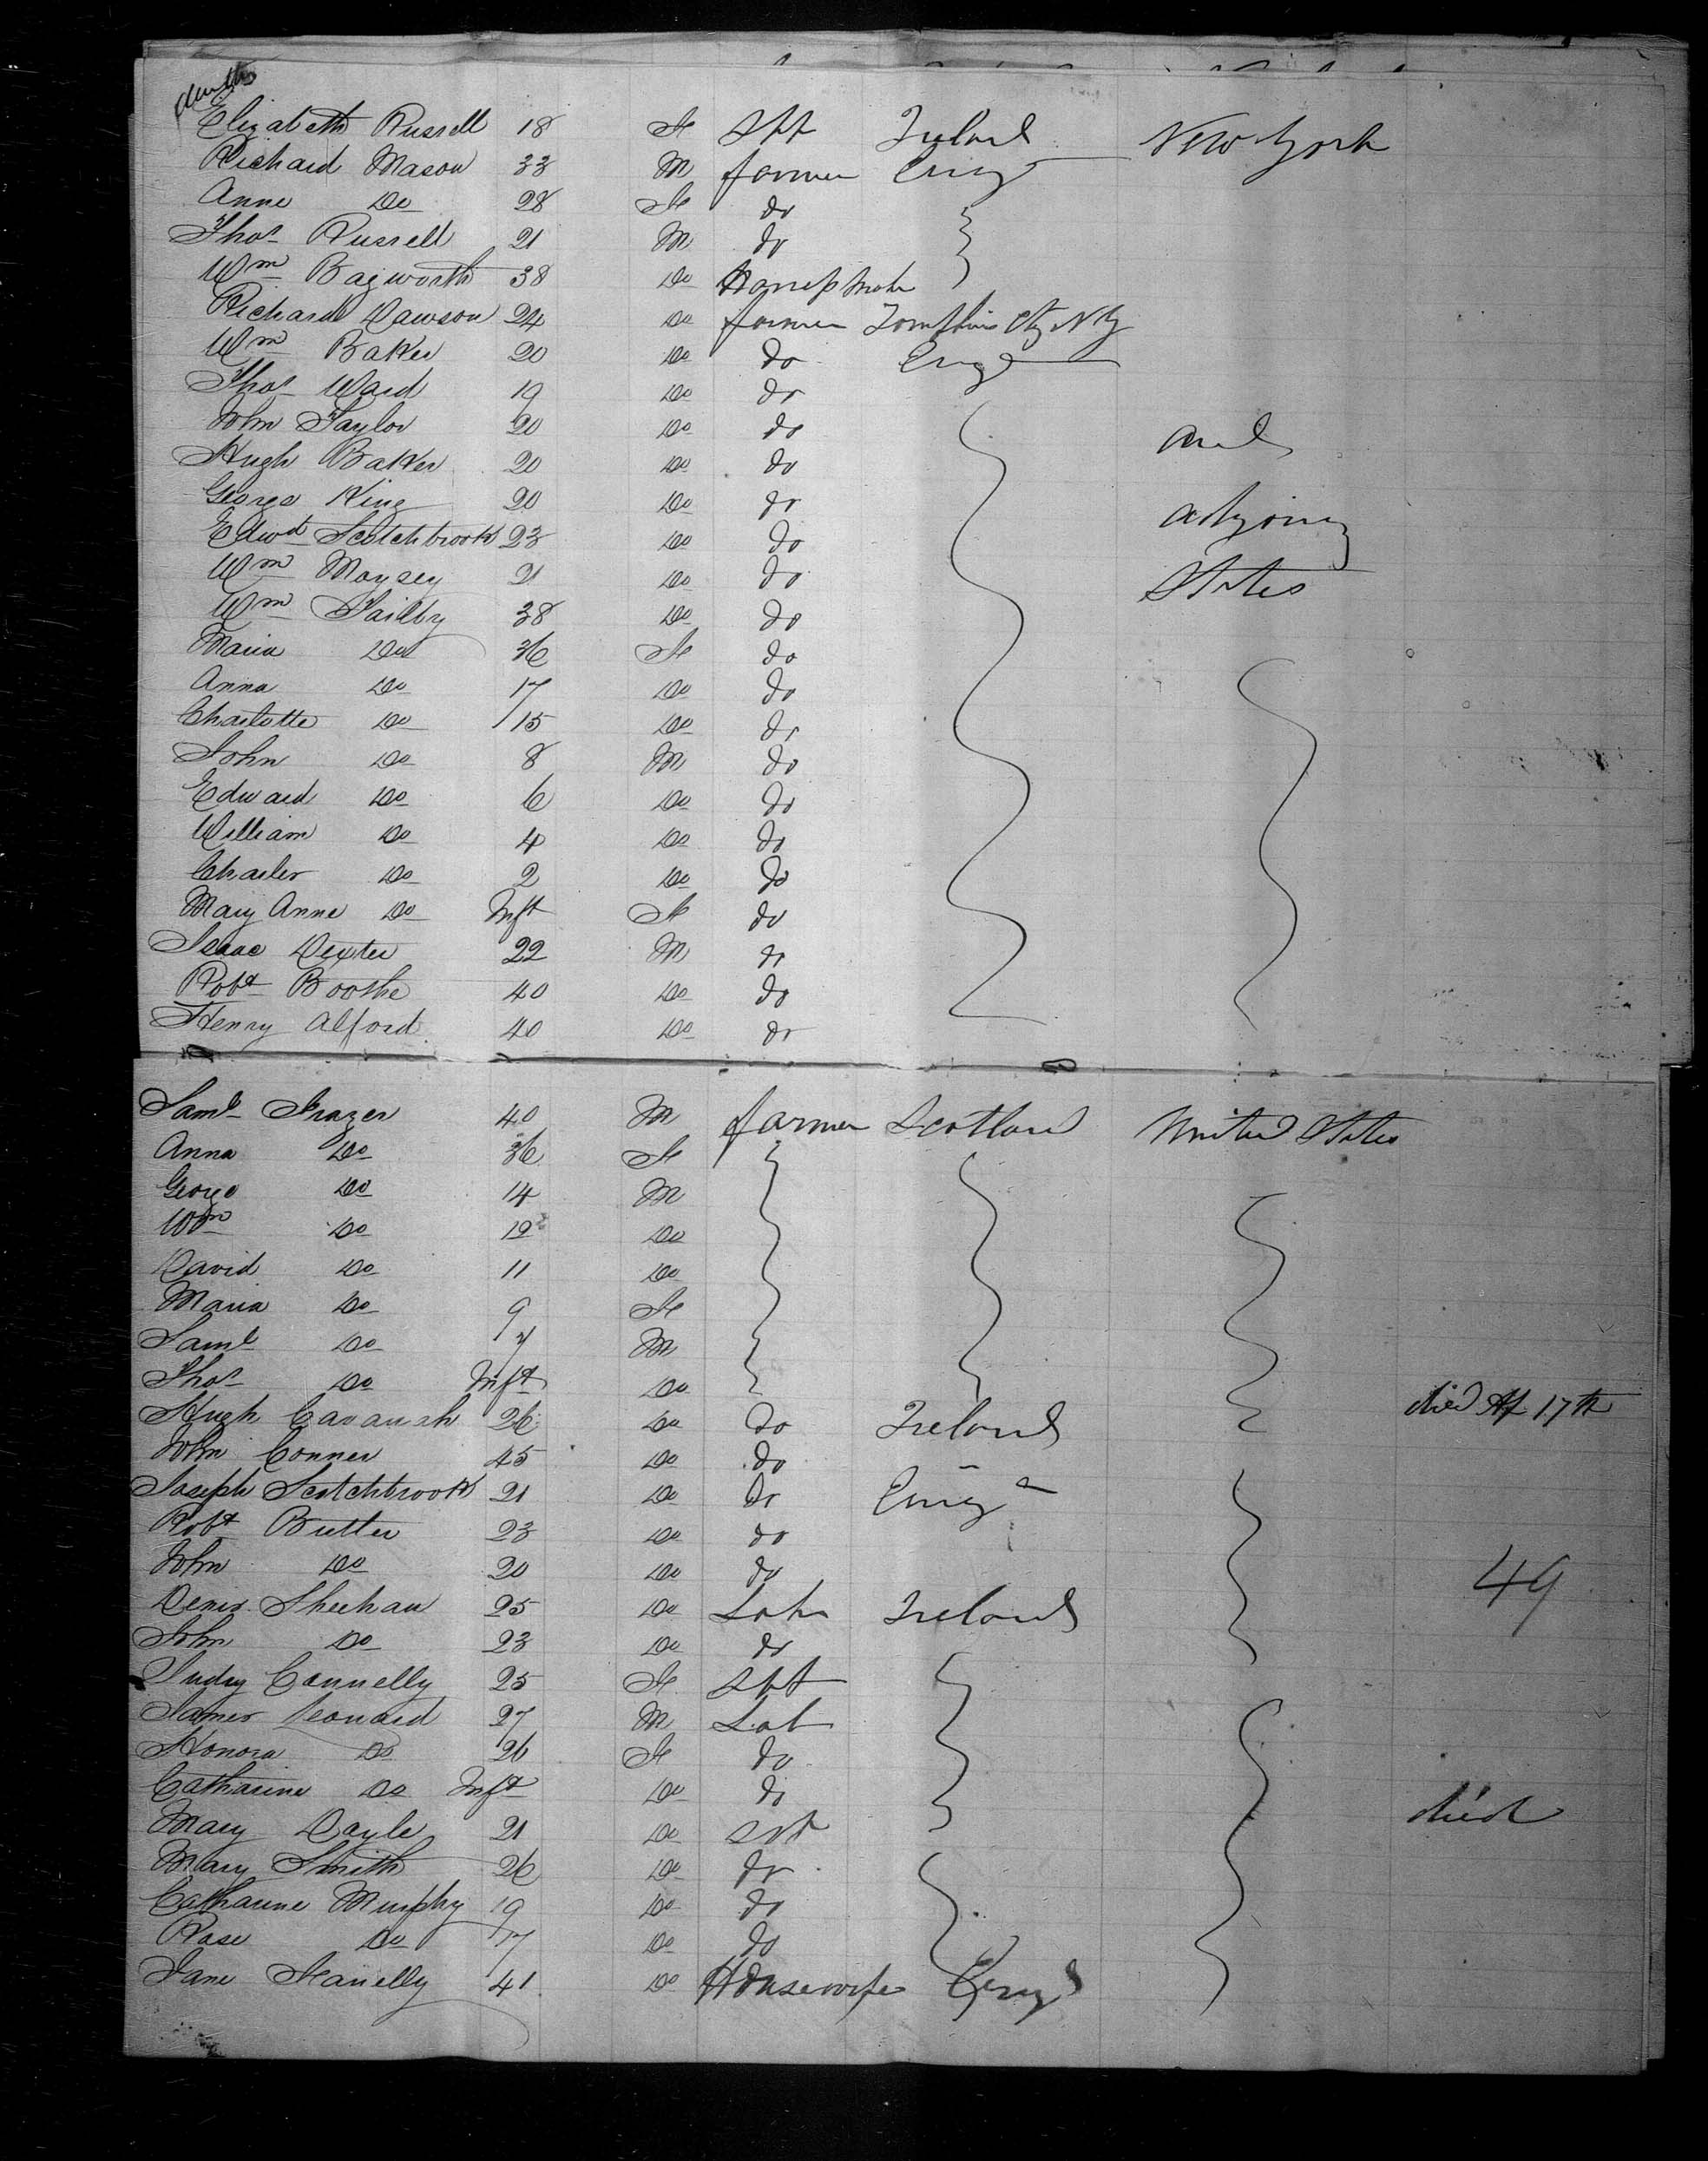 Elizabeth Russell 18 F Spt Ireland New York
Richard Mason 33 M farmer Engd
Anne Do 28 F do
Thos Russell 21 M do
Wm Bagworth 38 Do
Richard Dawson 24 Do farmer Tompkins Cty NY
Wm Baker 20 Do do Engd
Thos Ward 19 Do do
John Taylor 20 Do do and
Hugh Baker 20 Do do
George King 20 Do do adjoing
Edwd Scotchbrook 23 Do do
Wm Moysey 21 Do do States
Wm Tailby 38 Do do
Maria Do 36 F do
Anna Do 17 Do do
Charlotte Do 15 Do do
John Do 8 M do
Edward Do 6 Do do
William Do 4 Do do
Charles Do 2 Do do
Mary Anne Do Inft F do
Isaac Dexter 22 M do
Robt Boothe 40 Do do
Henry Alford 40 Do do
Saml Frazer 40 M farmer Scotland United States
Anna Do 36 F
George Do 14 M
Wm Do 12 Do
David Do 11 Do
Maria Do 9 F
Saml Do 7 M
Thos Do Inft Do died Ap 17th
Hugh Cavanah 26 Do do Ireland
John Conner 45 Do do
Joseph Scotchbrook 21 Do do Engd
Robt Butler 23 Do do
John Do 20 Do do 49
Denis Sheehan 25 Do Labr Ireland
John Do 23 Do do
Judy Connelly 25 F Spt
James Leonard 27 M Lab
Honora Do 26 F do
Catharine Do Inft Do do died
Mary Doyle 21 Do Spt
Mary Smith 26 Do do
Catharine Murphy 19 Do do
Rose Do 17 Do do
Jane Fanelly 41 Do Housewife Engd